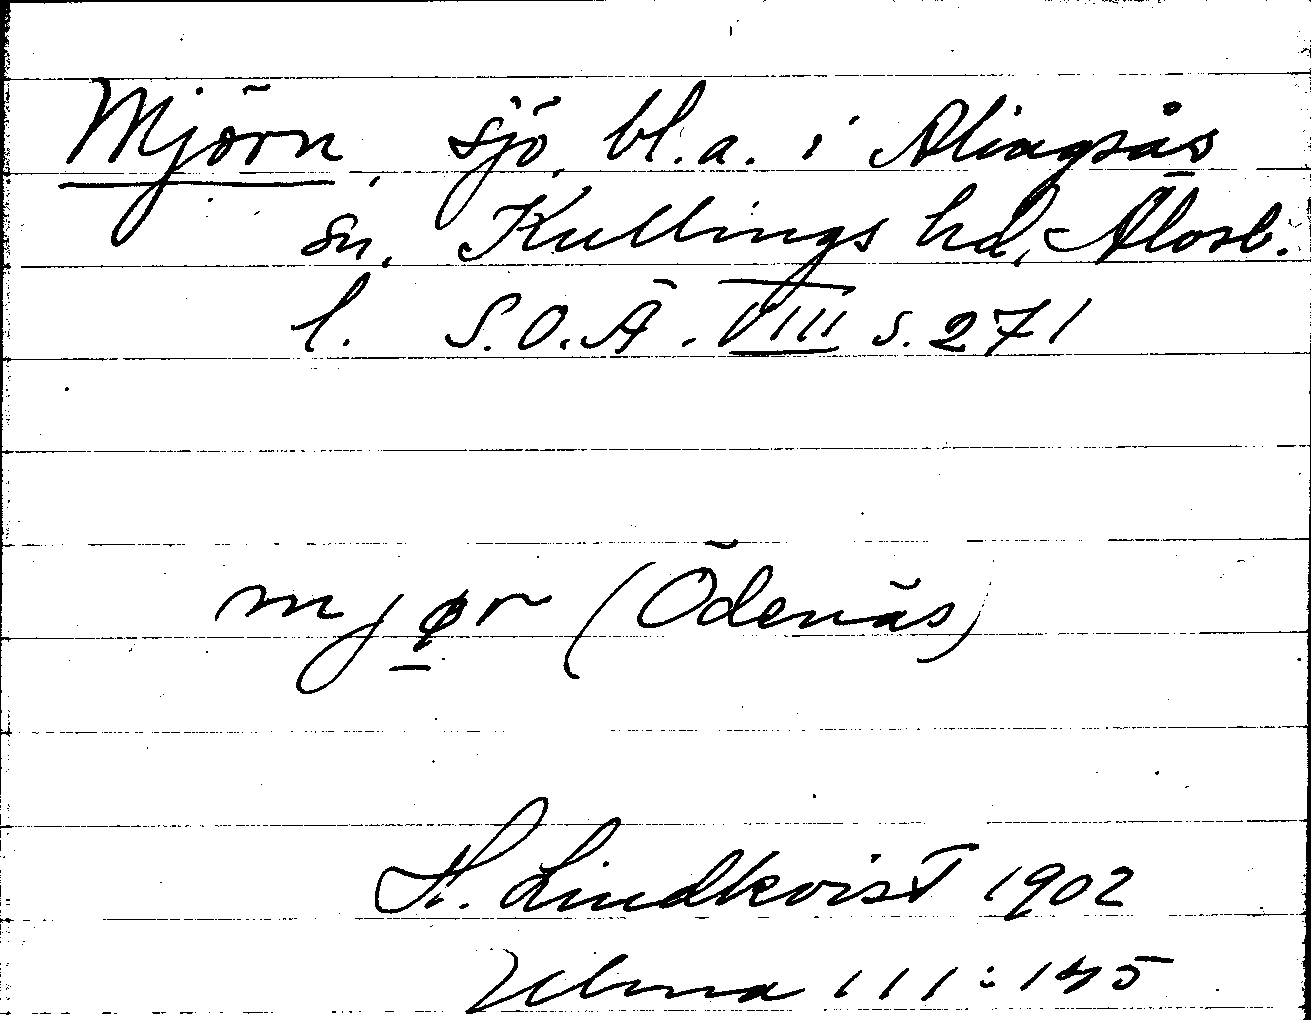 Mjörn, sjö, bl.a. i Alingsås
sn, Kullings hd, Älvsb.
l. S.O.Ä. VIII s. 271
mjør (Ödenäs)
H. Lindkvist 1902
Ulma 111:145